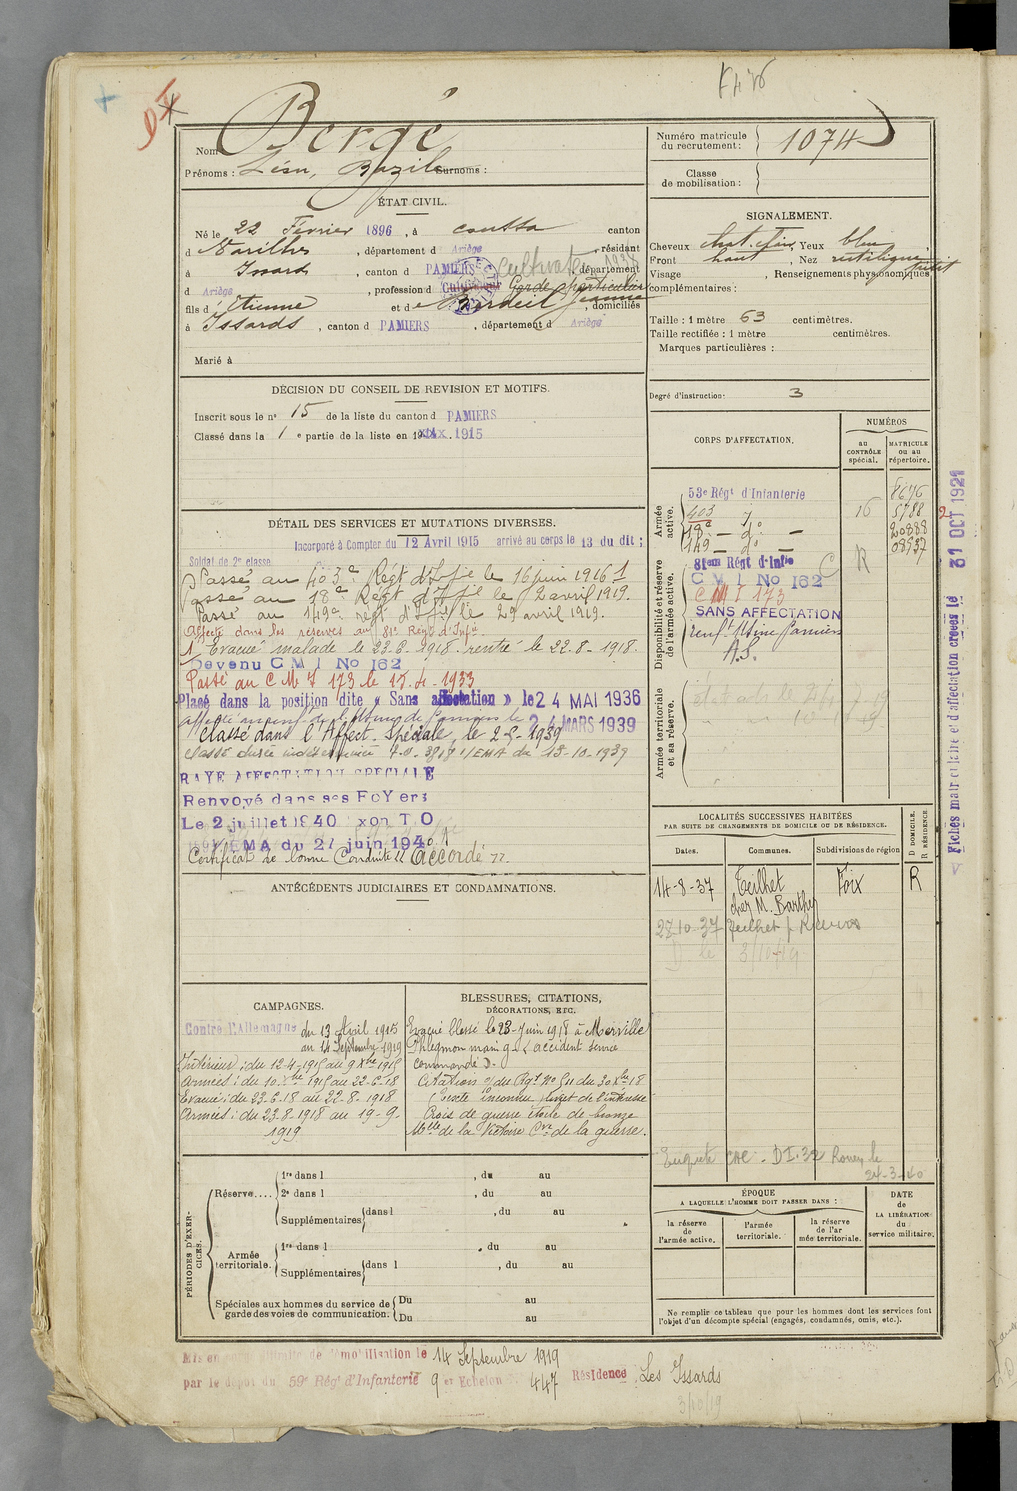 Nom Bergé
Prénoms : Léon, Bazile Surnoms :
Numéro matricule du recrutement : 1074
Classe de mobilisation :
ÉTAT CIVIL.
Né le 22 Février 1896, à Coussa canton
d Varilhes, département d Ariège, résidant
à Issards, canton d PAMIERS, département
d Ariège, profession d Cultivateur Garde particulier
fils d Etienne et d Bardeil Jeanne, domiciliés
à Issards, canton d PAMIERS, département d Ariège
Marié à
SIGNALEMENT.
Cheveux chat. clair, Yeux bleu,
Front haut, Nez rectiligne
Visage , Renseignements physionomiques
complémentaires :
Taille : 1 mètre 63 centimètres.
Taille rectifiée : 1 mètre centimètres.
Marques particulières :
Degré d'instruction : 3
DÉCISION DU CONSEIL DE REVISION ET MOTIFS.
Inscrit sous le n° 15 de la liste du canton d PAMIERS
Classé dans la 1 e partie de la liste en 1915
DÉTAIL DES SERVICES ET MUTATIONS DIVERSES.
Incorporé à Compter du 12 Avril 1915 arrivé au corps le 13 du dit ;
Soldat de 2e classe
Passé au 403e Régt d'Inf.ie le 16 juin 1916 1
Passé au 18e Régt d'Inf.ie le 2 avril 1919.
Passé au 149e régt d'Inf.ie le 29 avril 1919.
Affecté dans les réserves au 81e Régt d'Infie
1 Evacué malade le 23.6.1918. rentré le 22.8-1918.
Devenu C M I No 162
Passé au C M I 173 le 15.4.1933
Placé dans la position dite « Sans affectation » le 24 MAI 1936
24 MARS 1939
Classé dans l'Affect. Spéciale, le 2-9-1939
Classé durée indéterminée 13-10-1939
RAYE AFFECTATION SPECIALE
Renvoyé dans ses FoYers
Le 2 juillet 1940 xon T O
EMA du 27 juin 1940
Certificat de bonne Conduite " accordé ".
ANTÉCÉDENTS JUDICIAIRES ET CONDAMNATIONS.
CORPS D'AFFECTATION.
NUMÉROS
au CONTRÔLE spécial.
MATRICULE ou au répertoire.
Armée active.
53e Régt d'Infanterie 8676
403 16 5788
18e — do — 20888
149 — do — 08937
Disponibilité et réserve de l'armée active.
81eme Régt d'Infie
C M I No 162
C M I 173
SANS AFFECTATION
renft Usine Pamiers
A.S.
Armée territoriale et sa réserve.
Fiches matriculaire et d'affectation créées le 31 OCT 1921
LOCALITÉS SUCCESSIVES HABITÉES
PAR SUITE DE CHANGEMENTS DE DOMICILE OU DE RÉSIDENCE.
D DOMICILE. R RÉSIDENCE
Dates. Communes. Subdivisions de région
14-8-37 Teilhet Foix R
chez M. Barthe
28.10.37 Teilhet
3/10/19
CAMPAGNES.
Contre l'Allemagne du 13 Avril 1915
au 14 Septembre 1919
Intérieur : du 12-4-1915 au 9 Xbre 1915
Armées : du 10 Xbre 1915 au 22-6-18
Evacué : du 23-6-18 au 22-8-1918
Armées : du 23-8-1918 au 19-9-
1919
BLESSURES, CITATIONS,
DÉCORATIONS, ETC.
Evacué blessé le 23 Juin 1918 à Merville
Phlegmon main g. accident service
commandé D-
Citation o/ du Rgt No 511 du 30 Xbre 18
Croix de guerre étoile de bronze
Mlle de la Victoire Cve de la guerre.
PÉRIODES D'EXERCICES.
Réserve....
1re dans l , du au
2e dans l , du au
Supplémentaires dans l , du au
Armée territoriale.
1re dans l , du au
Supplémentaires dans l , du au
Spéciales aux hommes du service de garde des voies de communication.
Du au
Du au
24-3-40
ÉPOQUE
A LAQUELLE L'HOMME DOIT PASSER DANS :
la réserve de l'armée active.
l'armée territoriale.
la réserve de l'armée territoriale.
DATE de LA LIBÉRATION du service militaire.
Ne remplir ce tableau que pour les hommes dont les services font
l'objet d'un décompte spécial (engagés, condamnés, omis, etc.).
Mis en congé illimité de démobilisation le 14 Septembre 1919
par le dépôt du 59e Régt d'Infanterie 9 er Echelon 447 Résidence Les Issards
3/10/19